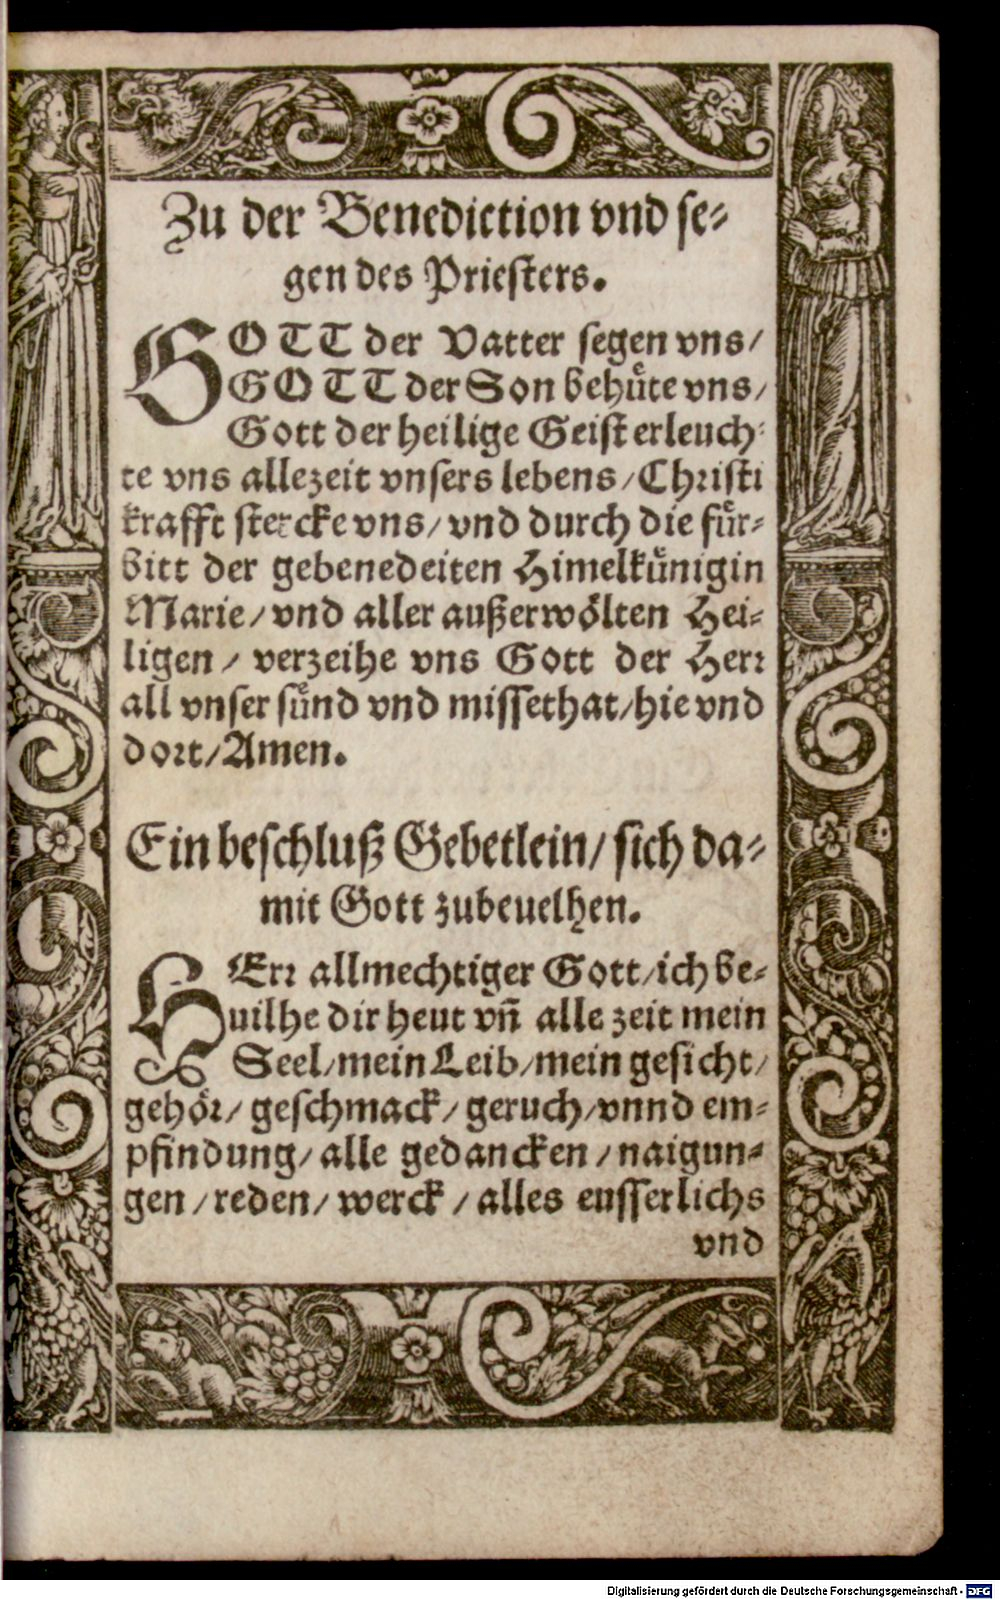 Zu der Benediction vnd se⸗
gen des Priesters.
GOTT der Vatter segen vns/
GOTT der Son behuͤte vns/
Gott der heilige Geist erleuch⸗
te vns allezeit vnsers lebens/Christi
krafft stercke vns/vnd durch die fuͤr⸗
bitt der gebenedeiten Himelkuͤnigin
Marie/vnd aller außerwoͤlten Hei⸗
ligen/ verzeihe vns Gott der Herr
all vnser suͤnd vnd missethat/hie vnd
dort/Amen.
Ein beschluß Gebetlein/sich da⸗
mit Gott zubeuelhen.
HErr allmechtiger Gott/ich be⸗
uilhe dir heut vñ alle zeit mein
Seel/mein Leib/mein gesicht/
gehoͤr/ geschmack/ geruch/vnnd em⸗
pfindung/alle gedancken/naigun⸗
gen/reden/werck/alles eusserlichs
vnd
Digitalisierung gefördert durch die Deutsche Forschungsgemeinschaft - DFG